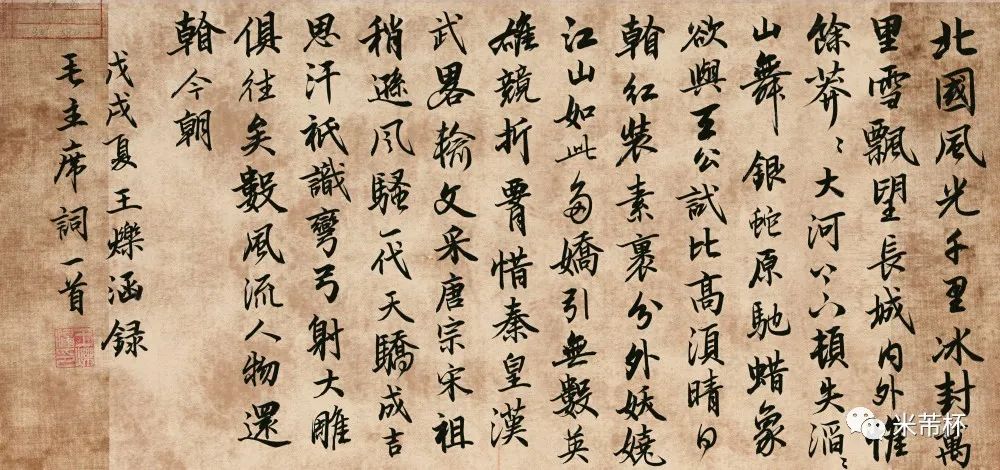 北國風光千里冰封萬
里雪飄望長城内外惟
餘莽〻大河上下頓失滔〻
山舞銀蛇原馳蜡象
欲與天公試比高須晴日
看紅裝素裹分外妖嬈
江山如此多嬌引無數英
雄競折腰惜秦皇漢
武畧輸文采唐宗宋祖
稍遜風騷一代天驕成吉
思汗衹識彎弓射大雕
俱往矣數風流人物還
看今朝
戊戌夏王爍涵録
毛主席詞一首
米芾杯